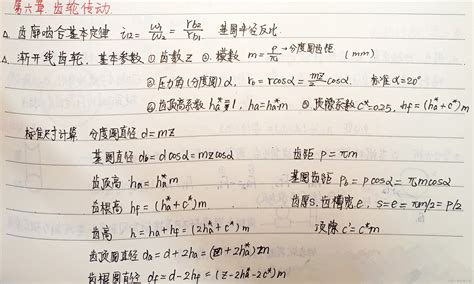 第六章 齿轮传动
△ 齿廓啮合基本定律 i₁₂ = ω₁/ω₂ = r_b2/r_b1 基圆半径反比.
△ 渐开线齿轮, 基本参数 ① 齿数 z ② 模数 m = p/π → 分度圆齿距 (mm)
③ 压力角(分度圆) α, r_b = r cosα = mz/2 cosα. 标准 α=20°
④ 齿顶高系数 ha* = 1, ha = ha*m ⑤ 顶隙系数 c*=0.25, hf = (ha*+c*)m
标准尺寸计算 分度圆直径 d = mz
基圆直径 db = d cosα = mz cosα 齿距 P = πm
齿顶高 ha = ha*m 基圆齿距 P_b = p cosα = πm cosα
齿根高 hf = (ha*+c*)m 齿厚s. 齿槽宽 e, s = e = πm/2 = P/2
齿高 h = ha + hf = (2ha*+c*)m 顶隙 c = c*m
齿顶圆直径 da = d + 2ha = (z + 2ha*)m
齿根圆直径 df = d - 2hf = (z - 2ha* - 2c*)m